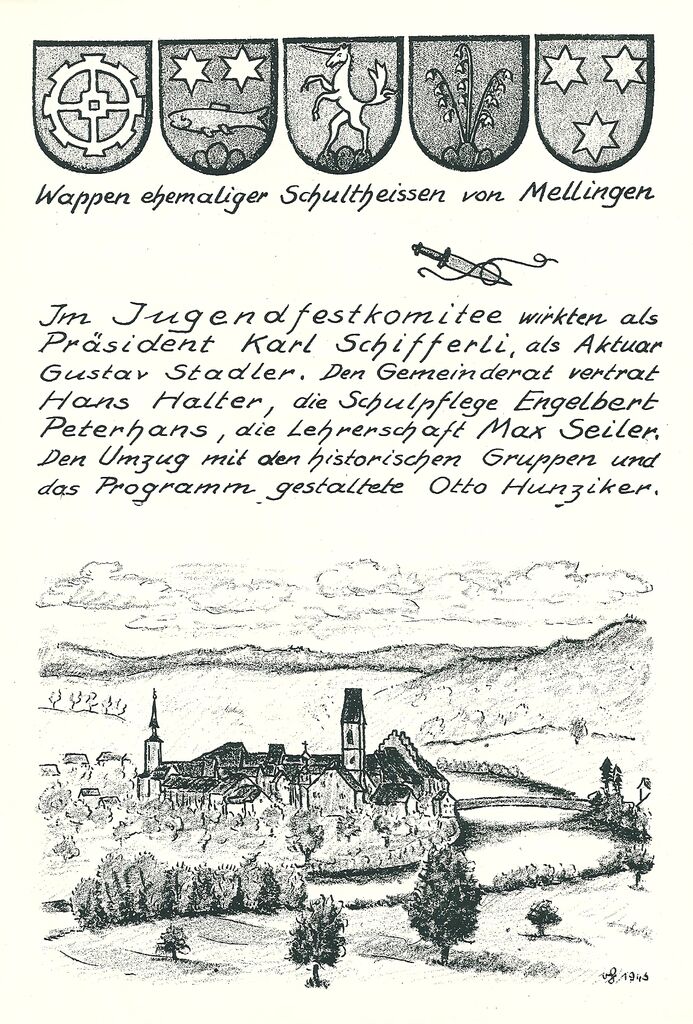 Wappen ehemaliger Schultheissen von Mellingen
Im Jugendfestkomitee wirkten als
Präsident Karl Schifferli, als Aktuar
Gustav Stadler. Den Gemeinderat vertrat
Hans Halter, die Schulpflege Engelbert
Peterhans, die Lehrerschaft Max Seiler.
Den Umzug mit den historischen Gruppen und
das Programm gestaltete Otto Hunziker.